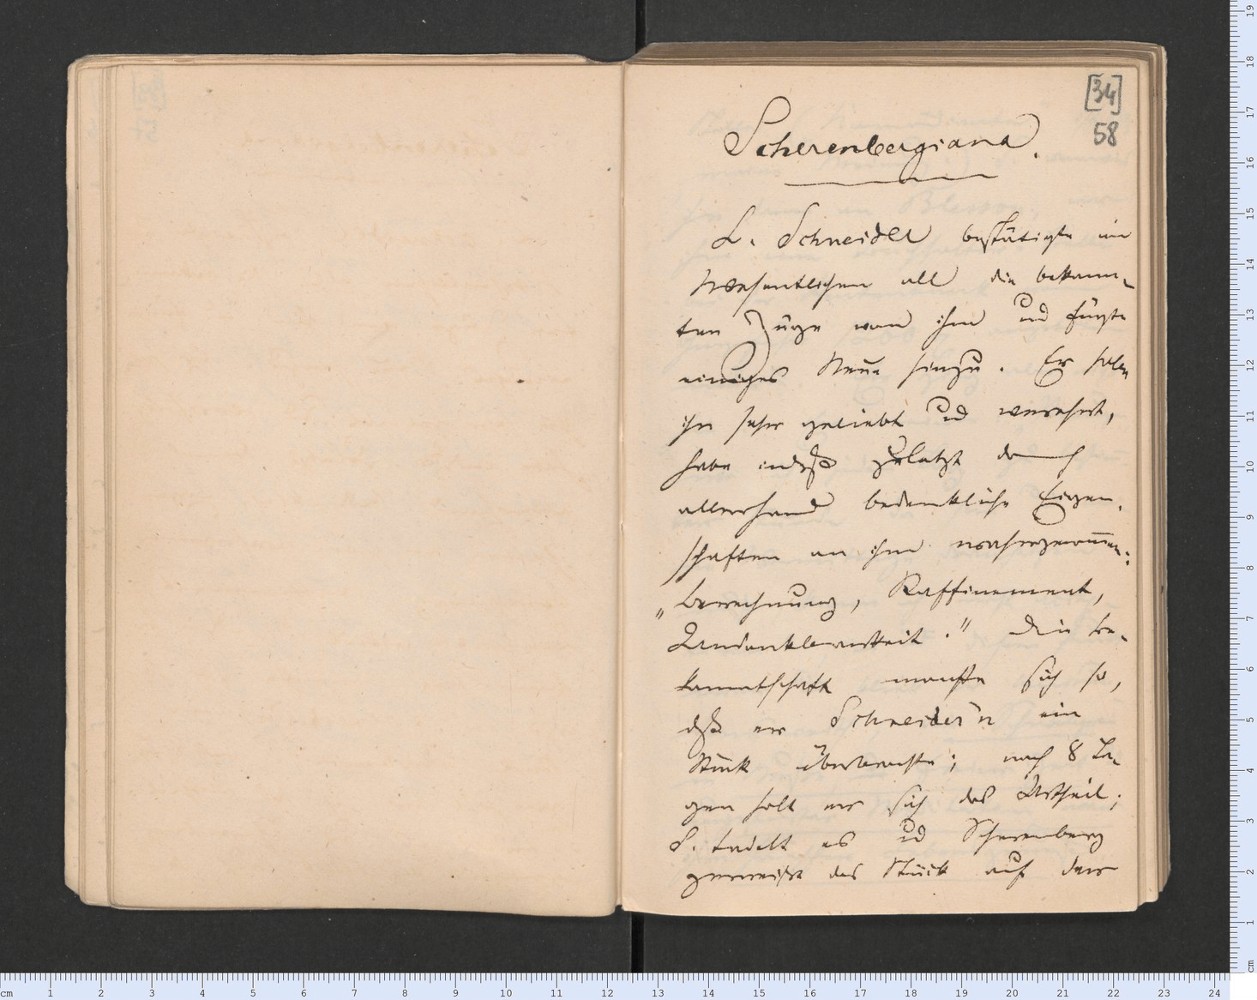 [34]
58
Scherenbergiana.
L. Schneider bestätigte im
Wesentlichen all die bekann-
ten Züge von ihm und fügte
einiges Neue hinzu. Er habe
ihn sehr geliebt und verehrt,
habe indeß zuletzt doch
allerhand bedenkliche Eigen-
schaften an ihm wahrgenommen:
„Berechnung, Raffinement,
Undankbarkeit." Die Be-
kanntschaft machte sich so,
daß er Schneider'n ein
Stück überbrachte; nach 8 Ta-
gen holt er sich das Urtheil;
S. tadelt es und Scherenberg
zerreißt das Stück auf der